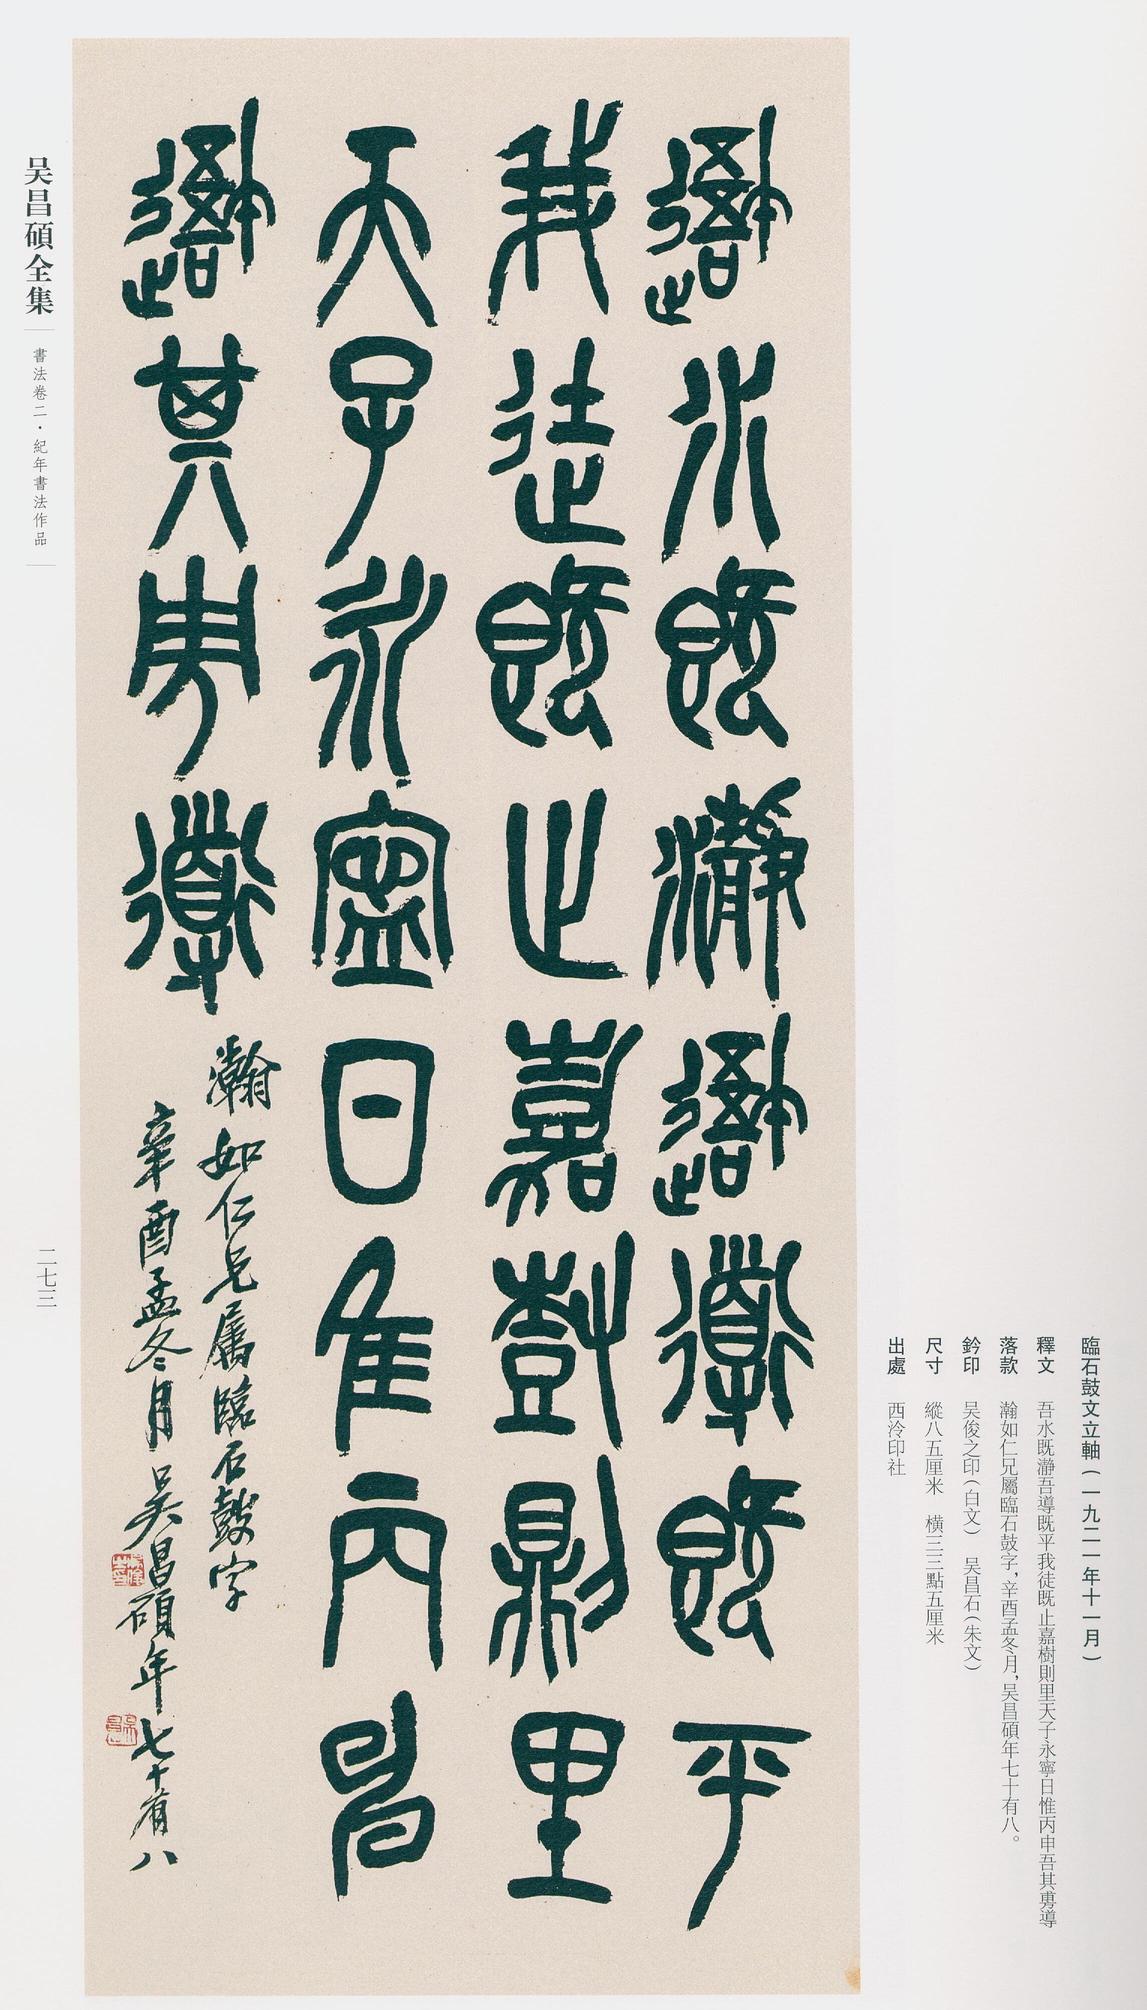 臨石鼓文立軸(一九二一年十一月)
釋文 吾水既瀞吾導既平我徒既止嘉樹則里天子永寧日惟丙申吾其旉導
落款 瀚如仁兄屬臨石鼓字,辛酉孟冬月,吴昌碩年七十有八。
鈐印 吴俊之印(白文) 吴昌石(朱文)
尺寸 縱八五厘米 横三三點五厘米
出處 西泠印社
䢩水既瀞䢩導既平
我徒既止嘉樹則里
天子永寧日隹丙申
䢩其旉導
瀚如仁兄屬臨石鼓字
辛酉孟冬月吳昌碩年七十有八
吴昌碩全集
書法卷二·紀年書法作品
二七三